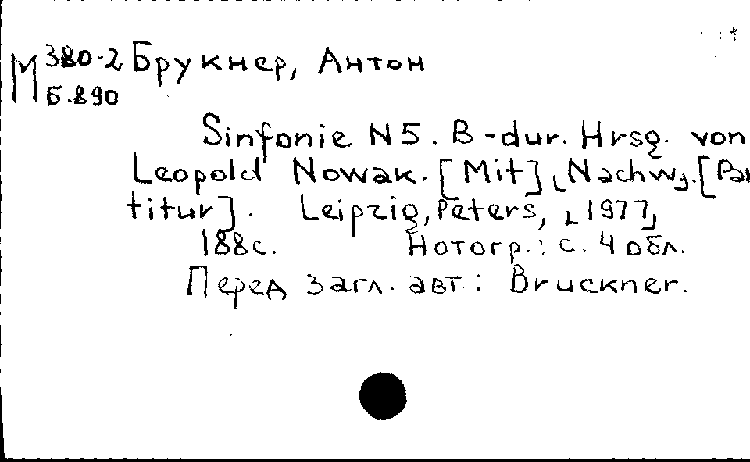 М 380-2 Брукнер, Антон
Б.890
Sinfonie N5. B-dur. Hrsg. von
Leopold Nowak. [Mit] Nachw. [Par
titur]. Leipzig, Peters, [1977]
188с. Нотогр.: с. 4 обл.
Перед загл. авт: Bruckner.